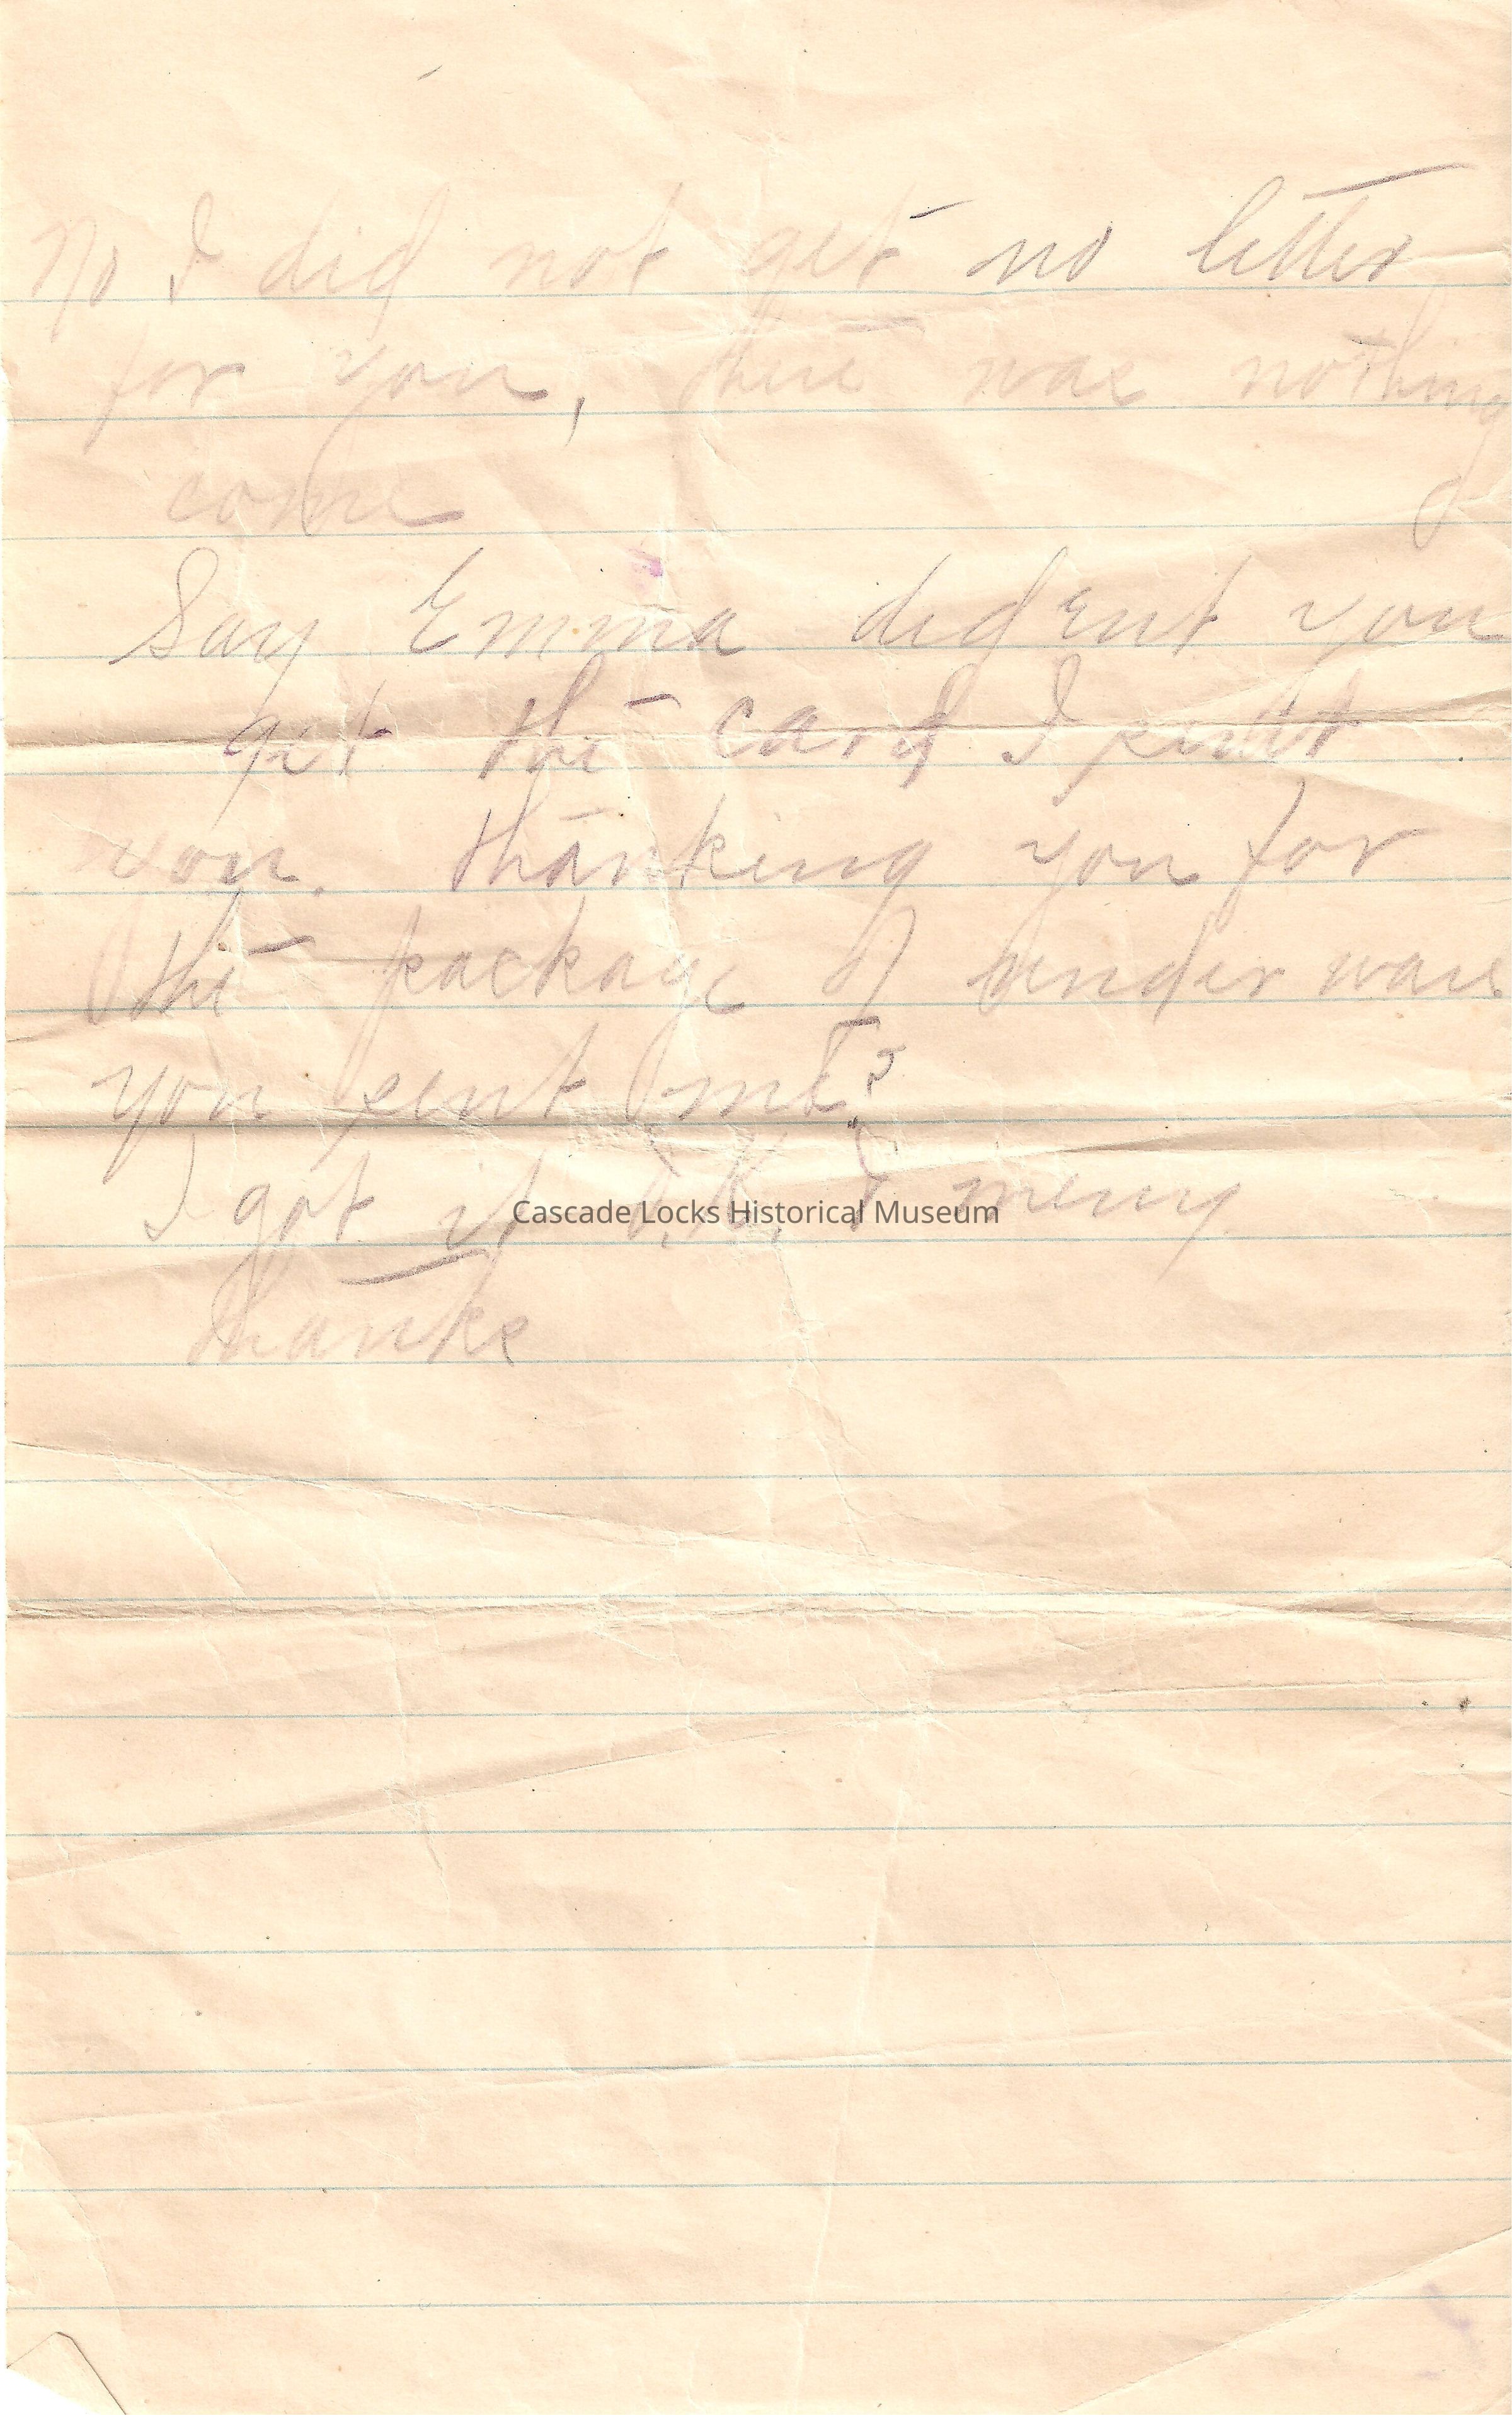 No I did not get no letter
for you, there was nothing
come
Say Emma did ent you
get the card I sent
you. thanking you for
the package of under ware
you sent me?
I got it O.K. & meny
thanks
Cascade Locks Historical Museum